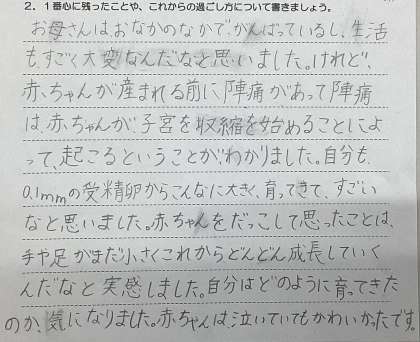 2. 1番心に残ったことや、これからの過ごし方について書きましょう。
お母さんはおなかのなかで、がんばっているし、生活
も、すごく大変なんだなと思いました。けれど、
赤ちゃんが産まれる前に陣痛があって陣痛
は、赤ちゃんが、子宮を収縮を始めることによ
って、起こるということがわかりました。自分も、
0.1mmの受精卵からこんなに大きく、育ってきて、すごい
なと思いました。赤ちゃんをだっこして思ったことは、
手や足がまだ小さくこれからどんどん成長していく
んだなと実感しました。自分はどのように育ってきた
のか、気になりました。赤ちゃんは泣いていてもかわいかったです。